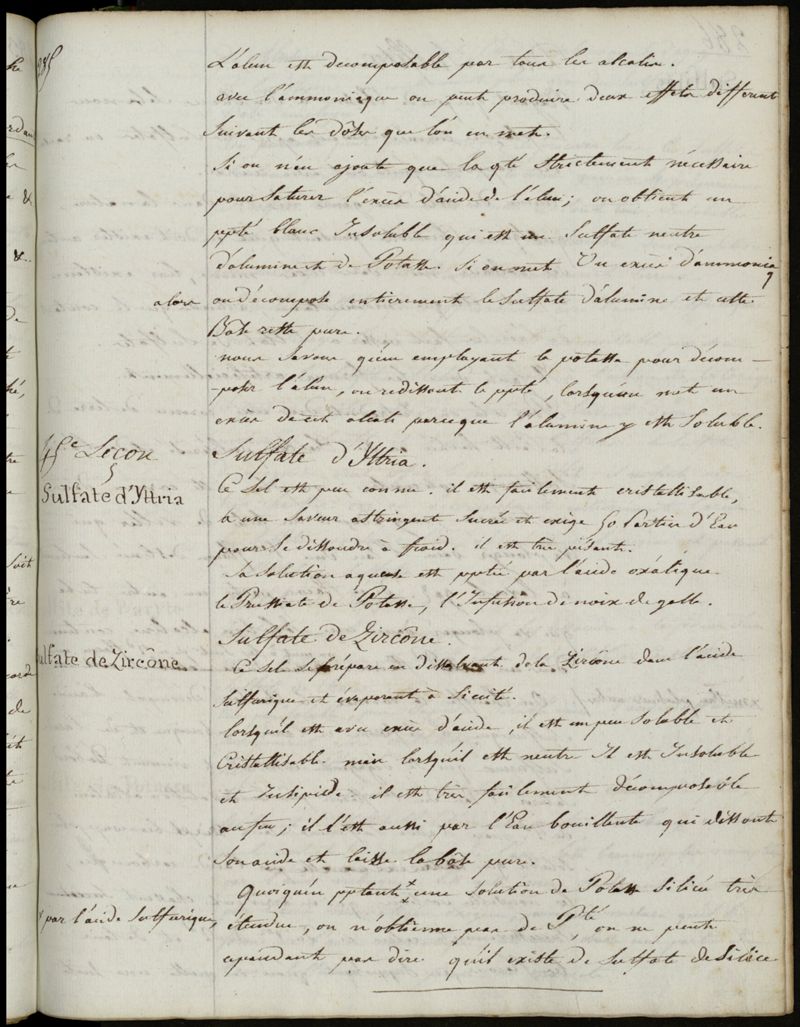 285
L'alun est decomposable par tous les alcalis.
avec l'ammoniaque on peut produire deux effets different
Suivant les dôses que l'on en met.
Si on n'en ajoute que la qté Strictement nécessaire
pour Saturer l'excès d'acide de l'alun; on obtient un
ppté blanc Insoluble qui est un Sulfate neutre
d'alumine et de Potasse. Si on met Un excès d'ammoniaq
alors on décompose entierement le Sulfate d'alumine et cette
Base reste pure.
nous savons qu'en employant la potasse pour décom-
-poser l'alun, on redissout le ppté, lorsqu'on met un
excès de cet alcali parceque l'alumine y est Soluble.
45e Lecon
Sulfate d'Yttria.
Sulfate d'Yttria
Ce Sel est peu connu. il est facilement cristallisable,
a une Saveur astringent Sucrée et exige 50 Parties d'Eau
pour se dissoudre à froid. il est très pésant.
Sa Solution aqueuse est pptée par l'acide oxalique
le Prussiate de Potasse, l'Infusion de noix de galle.
Sulfate de Zircône.
ulfate de Zircône
Ce Sel Se prépare en dissolvant de la Zircône dans l'acide
Sulfurique et évaporant à Siccité.
lorsqu'il est avec excès d'acide, il est un peu Soluble et
Cristallisable. mais lorsqu'il est neutre Il est Insoluble
et Insipide. il est très facilement décomposable
au feu; il l'est aussi par l'Eau bouillante qui dissout
Son acide et laisse la bâse pure.
Quoiqu'en pptant + une solution de Potasse Silicée très
+ par l'acide Sulfurique,
étendue, on n'obtienne pas de Pté, on ne peut
cependant pas dire qu'il existe de Sulfate de Silice